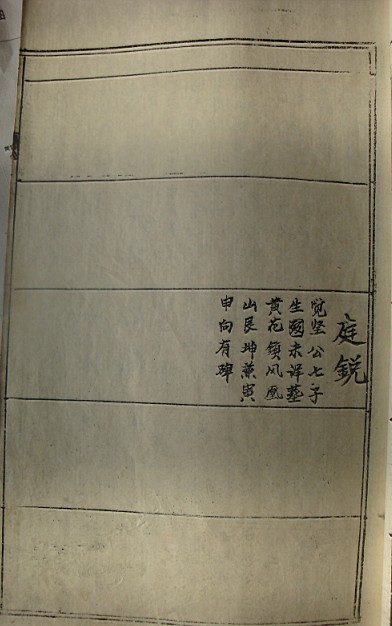 庭鋭
觉坚公七子
生歿未详墓
黄花镇凤凰
山艮坤兼寅
申向有碑